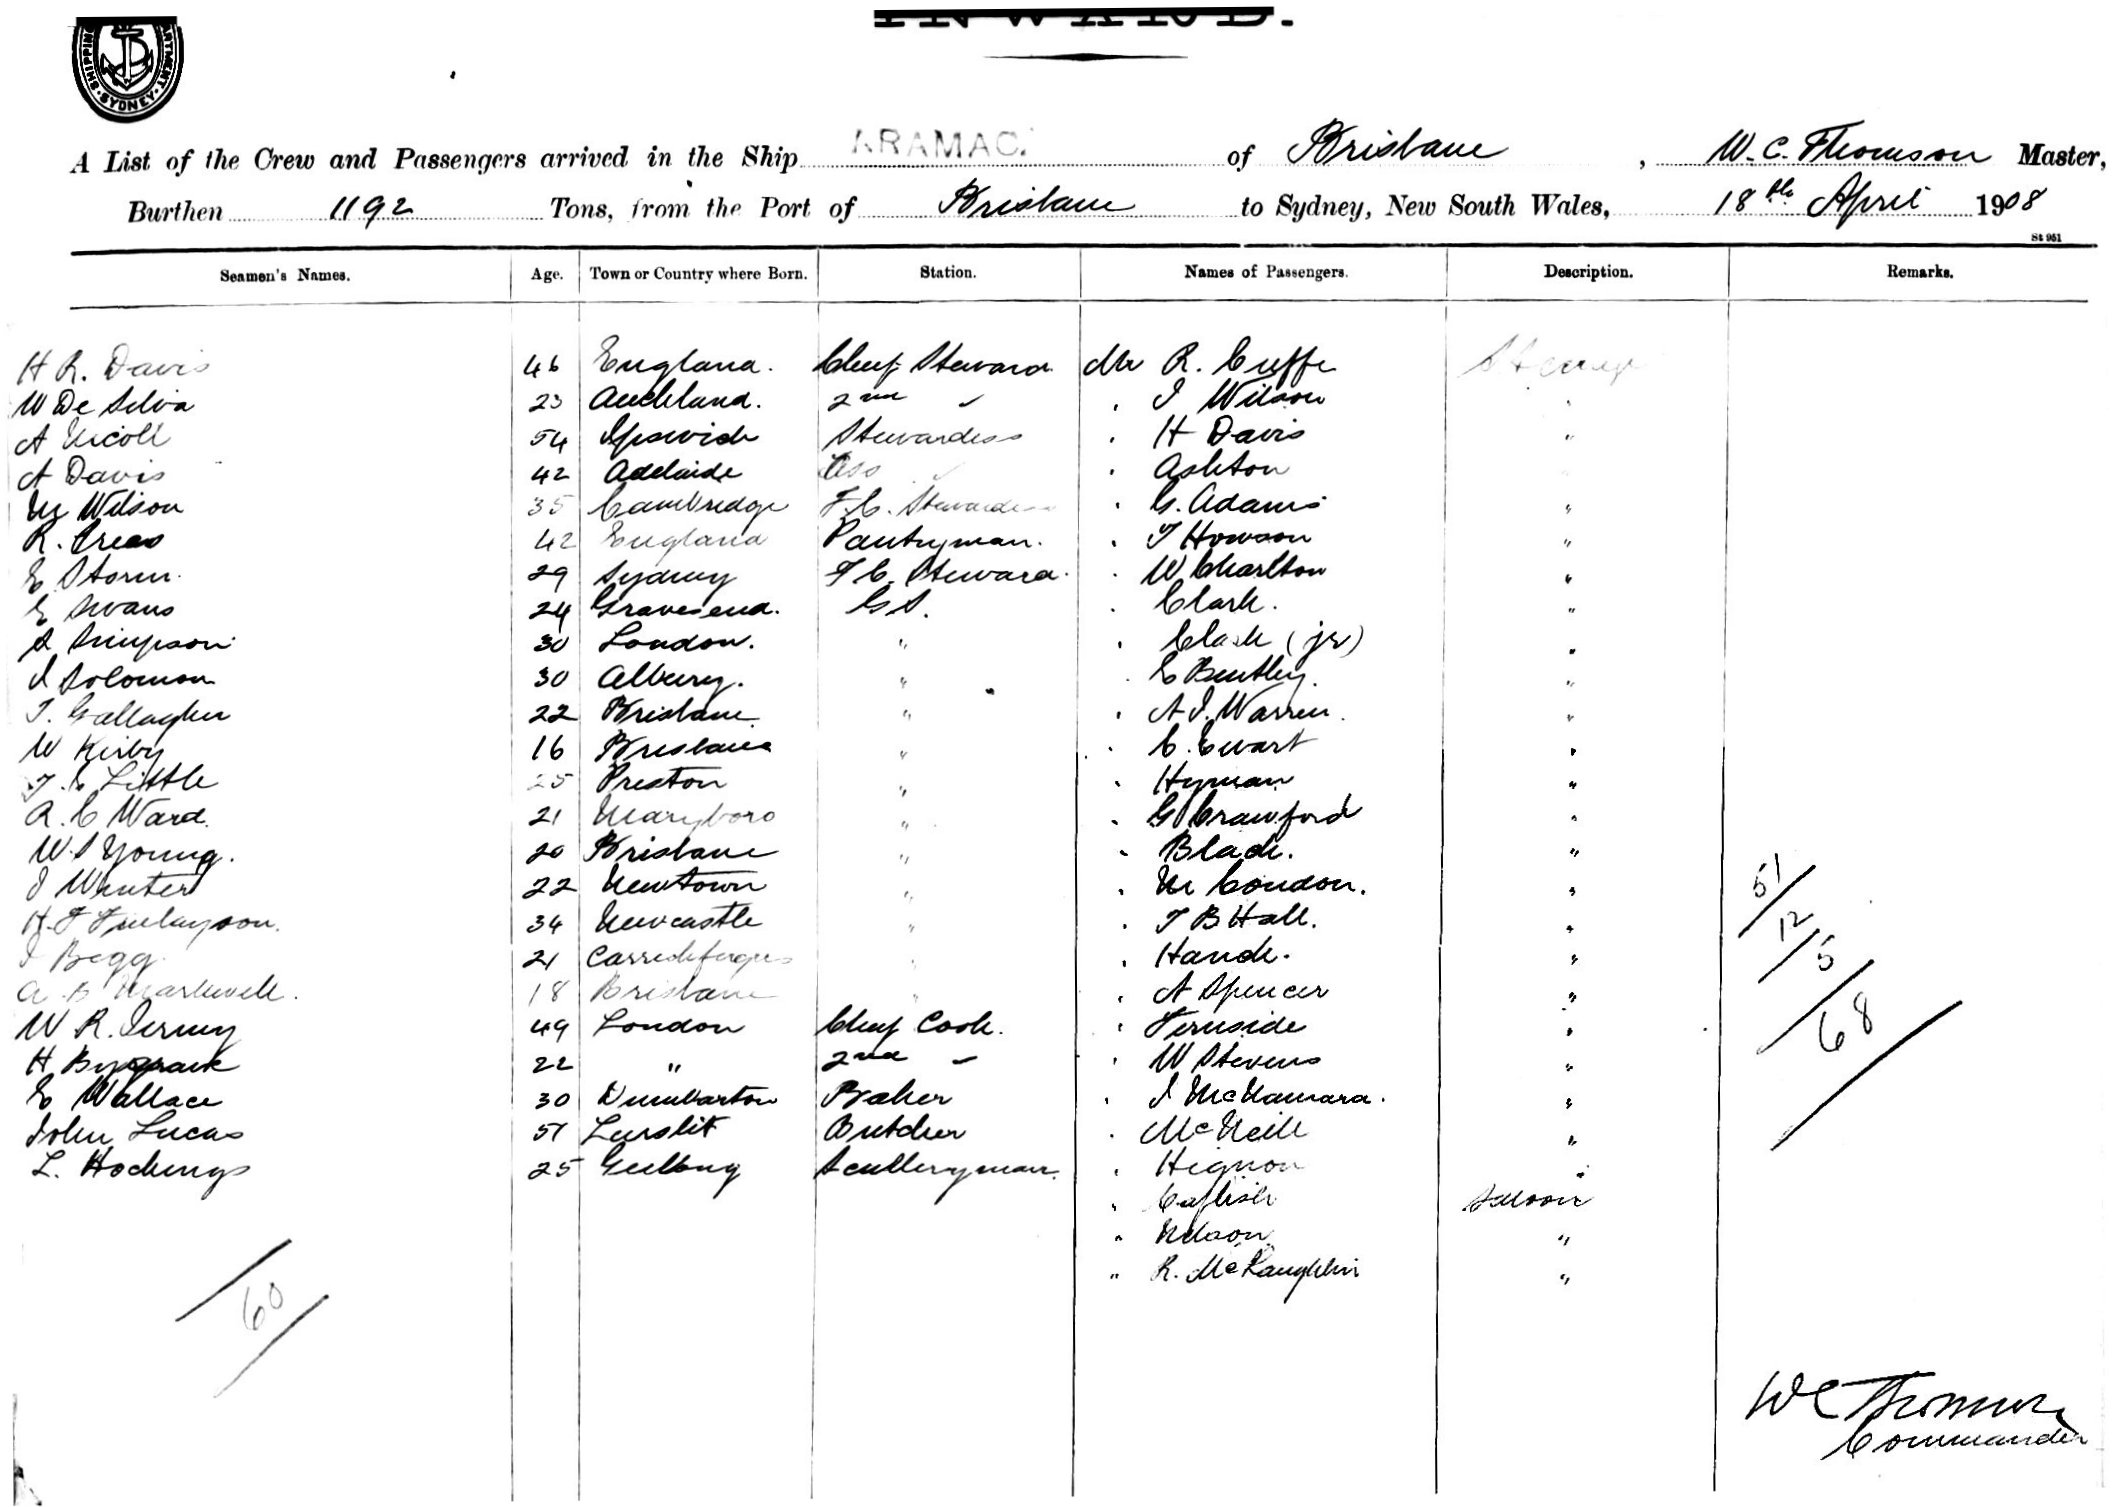 INWARD.
SHIPPING SYDNEY
A List of the Crew and Passengers arrived in the Ship ARAMAC. of Brisbane, W. C. Thomson Master,
Burthen 1192 Tons, from the Port of Brisbane to Sydney, New South Wales, 18th April 1908
St 951
Seamen's Names. Age. Town or Country where Born. Station. Names of Passengers. Description. Remarks.
H R. Davis 46 England. Chief Steward Mr R. Cuffe Steerage
W De Silva 23 Auckland. 2nd " " J Wilson "
A Nicoll 54 Ipswich Stewardess " H Davis "
A Davis 42 Adelaide Ass " Ashton
M Wilson 35 Cambridge F.C. Stewardess " G. Adams "
R. 42 England Pantryman. " T Howson "
E Storm. 29 Sydney F C. Steward. " W Charlton "
E Swans 24 Gravesend. G S. " Clark. "
S Simpson 30 London. " " Clark (jr) "
J Solomon 30 Albury. " " E Bentley. "
T. Gallagher 22 Brisbane " " A J. Warren. "
W Kirby 16 Brisbane " " C. Ewart "
T. E Little 25 Preston " " Hyman "
A. C Ward. 21 Maryboro " " G Crawford "
W S Young. 20 Brisbane " " Black. "
J Winter 22 Newtown " " M Condon. "
H. F Finlayson. 34 Newcastle " " T B Hall. "
J Begg 21 Carrickfergus " " Hande. "
A. B Markwell. 18 Brisbane " " A Spencer "
W R. 49 London Chief Cook. " Fernside "
H 22 " 2nd " " W Stevens "
E Wallace 30 Dumbarton Baker " J McNamara. "
John Lucas 51 Butcher " McNeill "
L. Hockings 25 Geelong Sculleryman. " Hignon "
" Saloon
" Nelson "
" R. McLaughlin "
51
12
5
68
60
W C Thomson
Commander